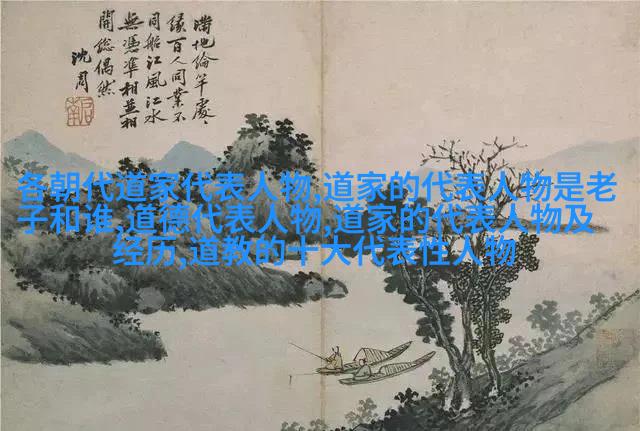 滿地綸竿處〻
緣百人同業不
同船江風江水
無憑準相並相
開總偶然
沈周
各朝代道家代表人物,道家的代表人物是老
子和谁,道德代表人物,道家的代表人物及
经历,道教的十大代表性人物